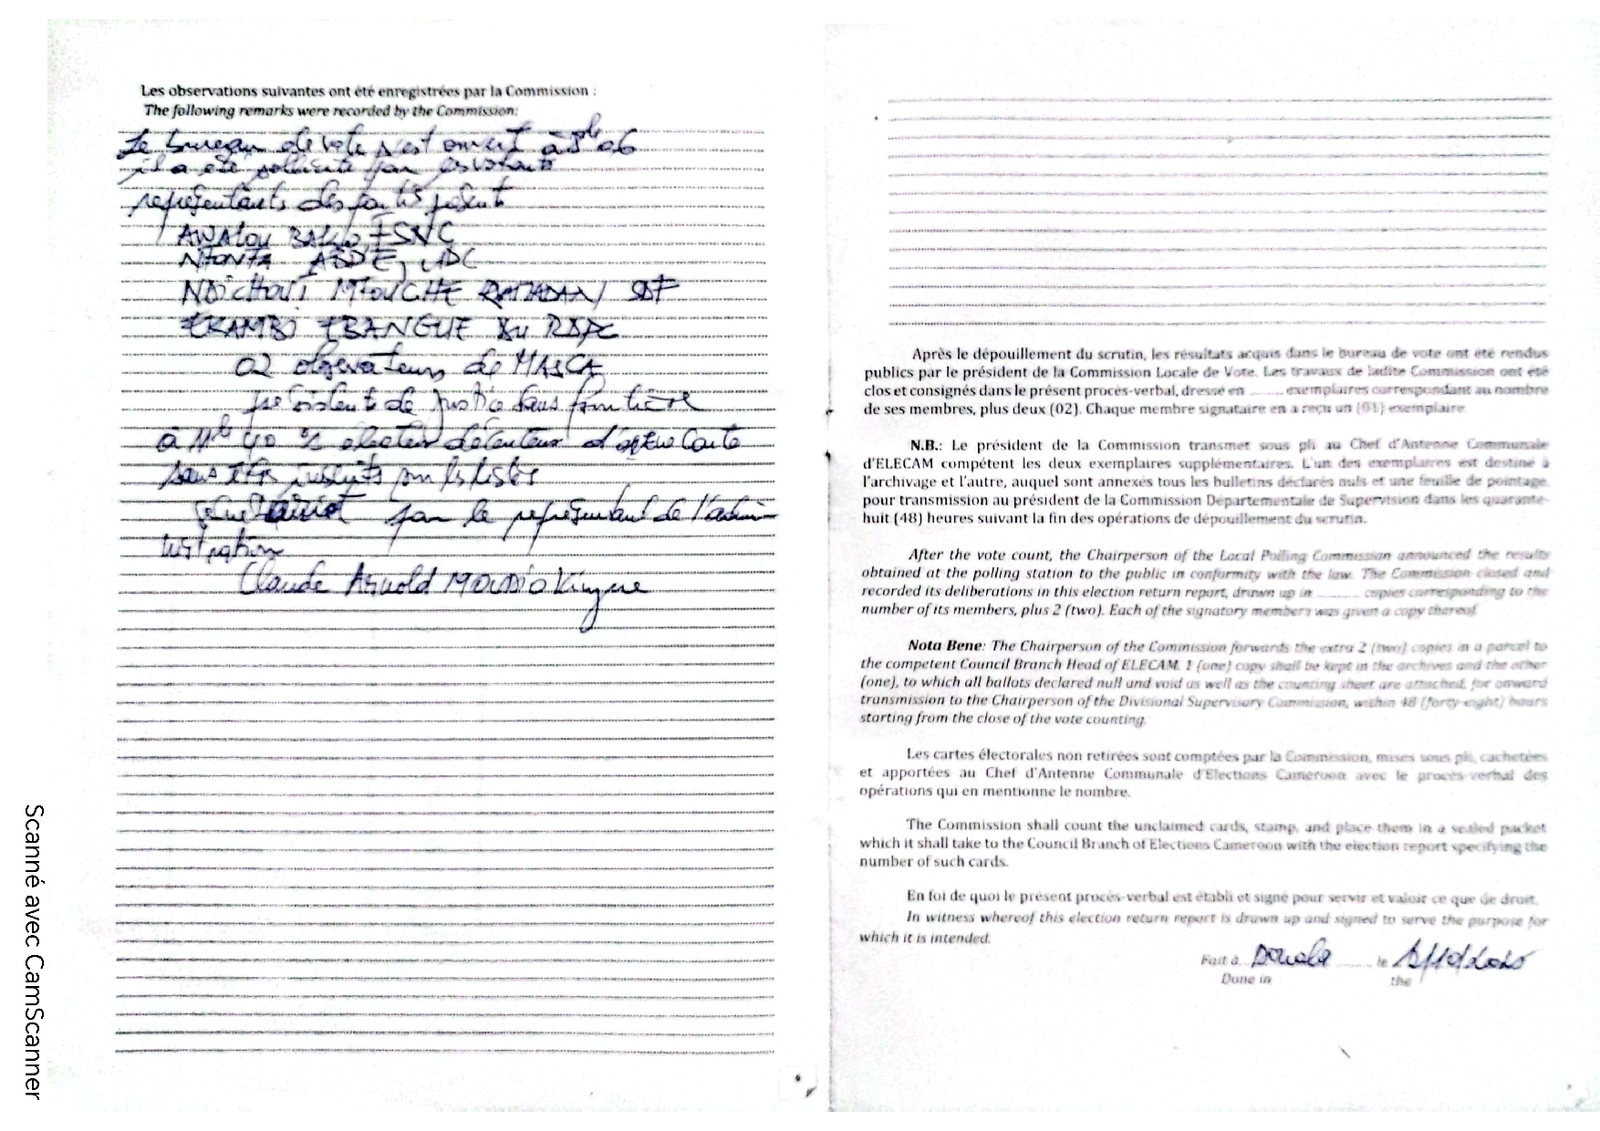 Les observations suivantes ont été enregistrées par la Commission :
The following remarks were recorded by the Commission:
Le bureau de vote s'est ouvert à 8h 06
il a été par
représentants des partis
AWALOU BALKO, FSNC
ABDE, UDC
NDICHOUT MFOUCHE RAMADAN / SDF
EKAMBI EBANGUE du RDPC
02 observateurs de MASCA
de justice sans frontière
à 11h 40 électeur carte
sans sur les listes
par le représentant de l'admi-
nistration
Claude Arnold
Après le dépouillement du scrutin, les résultats acquis dans le bureau de vote ont été rendus
publics par le président de la Commission Locale de Vote. Les travaux de ladite Commission ont été
clos et consignés dans le présent procès-verbal, dressé en ........ exemplaires correspondant au nombre
de ses membres, plus deux (02). Chaque membre signataire en a reçu un (01) exemplaire.
N.B.: Le président de la Commission transmet sous pli au Chef d'Antenne Communale
d'ELECAM compétent les deux exemplaires supplémentaires. L'un des exemplaires est destiné à
l'archivage et l'autre, auquel sont annexés tous les bulletins déclarés nuls et une feuille de pointage,
pour transmission au président de la Commission Départementale de Supervision dans les quarante-
huit (48) heures suivant la fin des opérations de dépouillement du scrutin.
After the vote count, the Chairperson of the Local Polling Commission announced the results
obtained at the polling station to the public in conformity with the law. The Commission closed and
recorded its deliberations in this election return report, drawn up in ........ copies corresponding to the
number of its members, plus 2 (two). Each of the signatory members was given a copy thereof.
Nota Bene: The Chairperson of the Commission forwards the extra 2 (two) copies in a parcel to
the competent Council Branch Head of ELECAM. 1 (one) copy shall be kept in the archives and the other
(one), to which all ballots declared null and void as well as the counting sheet are attached, for onward
transmission to the Chairperson of the Divisional Supervisory Commission, within 48 (forty-eight) hours
starting from the close of the vote counting.
Les cartes électorales non retirées sont comptées par la Commission, mises sous pli, cachetées
et apportées au Chef d'Antenne Communale d'Elections Cameroon avec le procès-verbal des
opérations qui en mentionne le nombre.
The Commission shall count the unclaimed cards, stamp, and place them in a sealed packet
which it shall take to the Council Branch of Elections Cameroon with the election report specifying the
number of such cards.
En foi de quoi le présent procès-verbal est établi et signé pour servir et valoir ce que de droit.
In witness whereof this election return report is drawn up and signed to serve the purpose for
which it is intended.
Fait à Douala le
Done in the
Scanné avec CamScanner